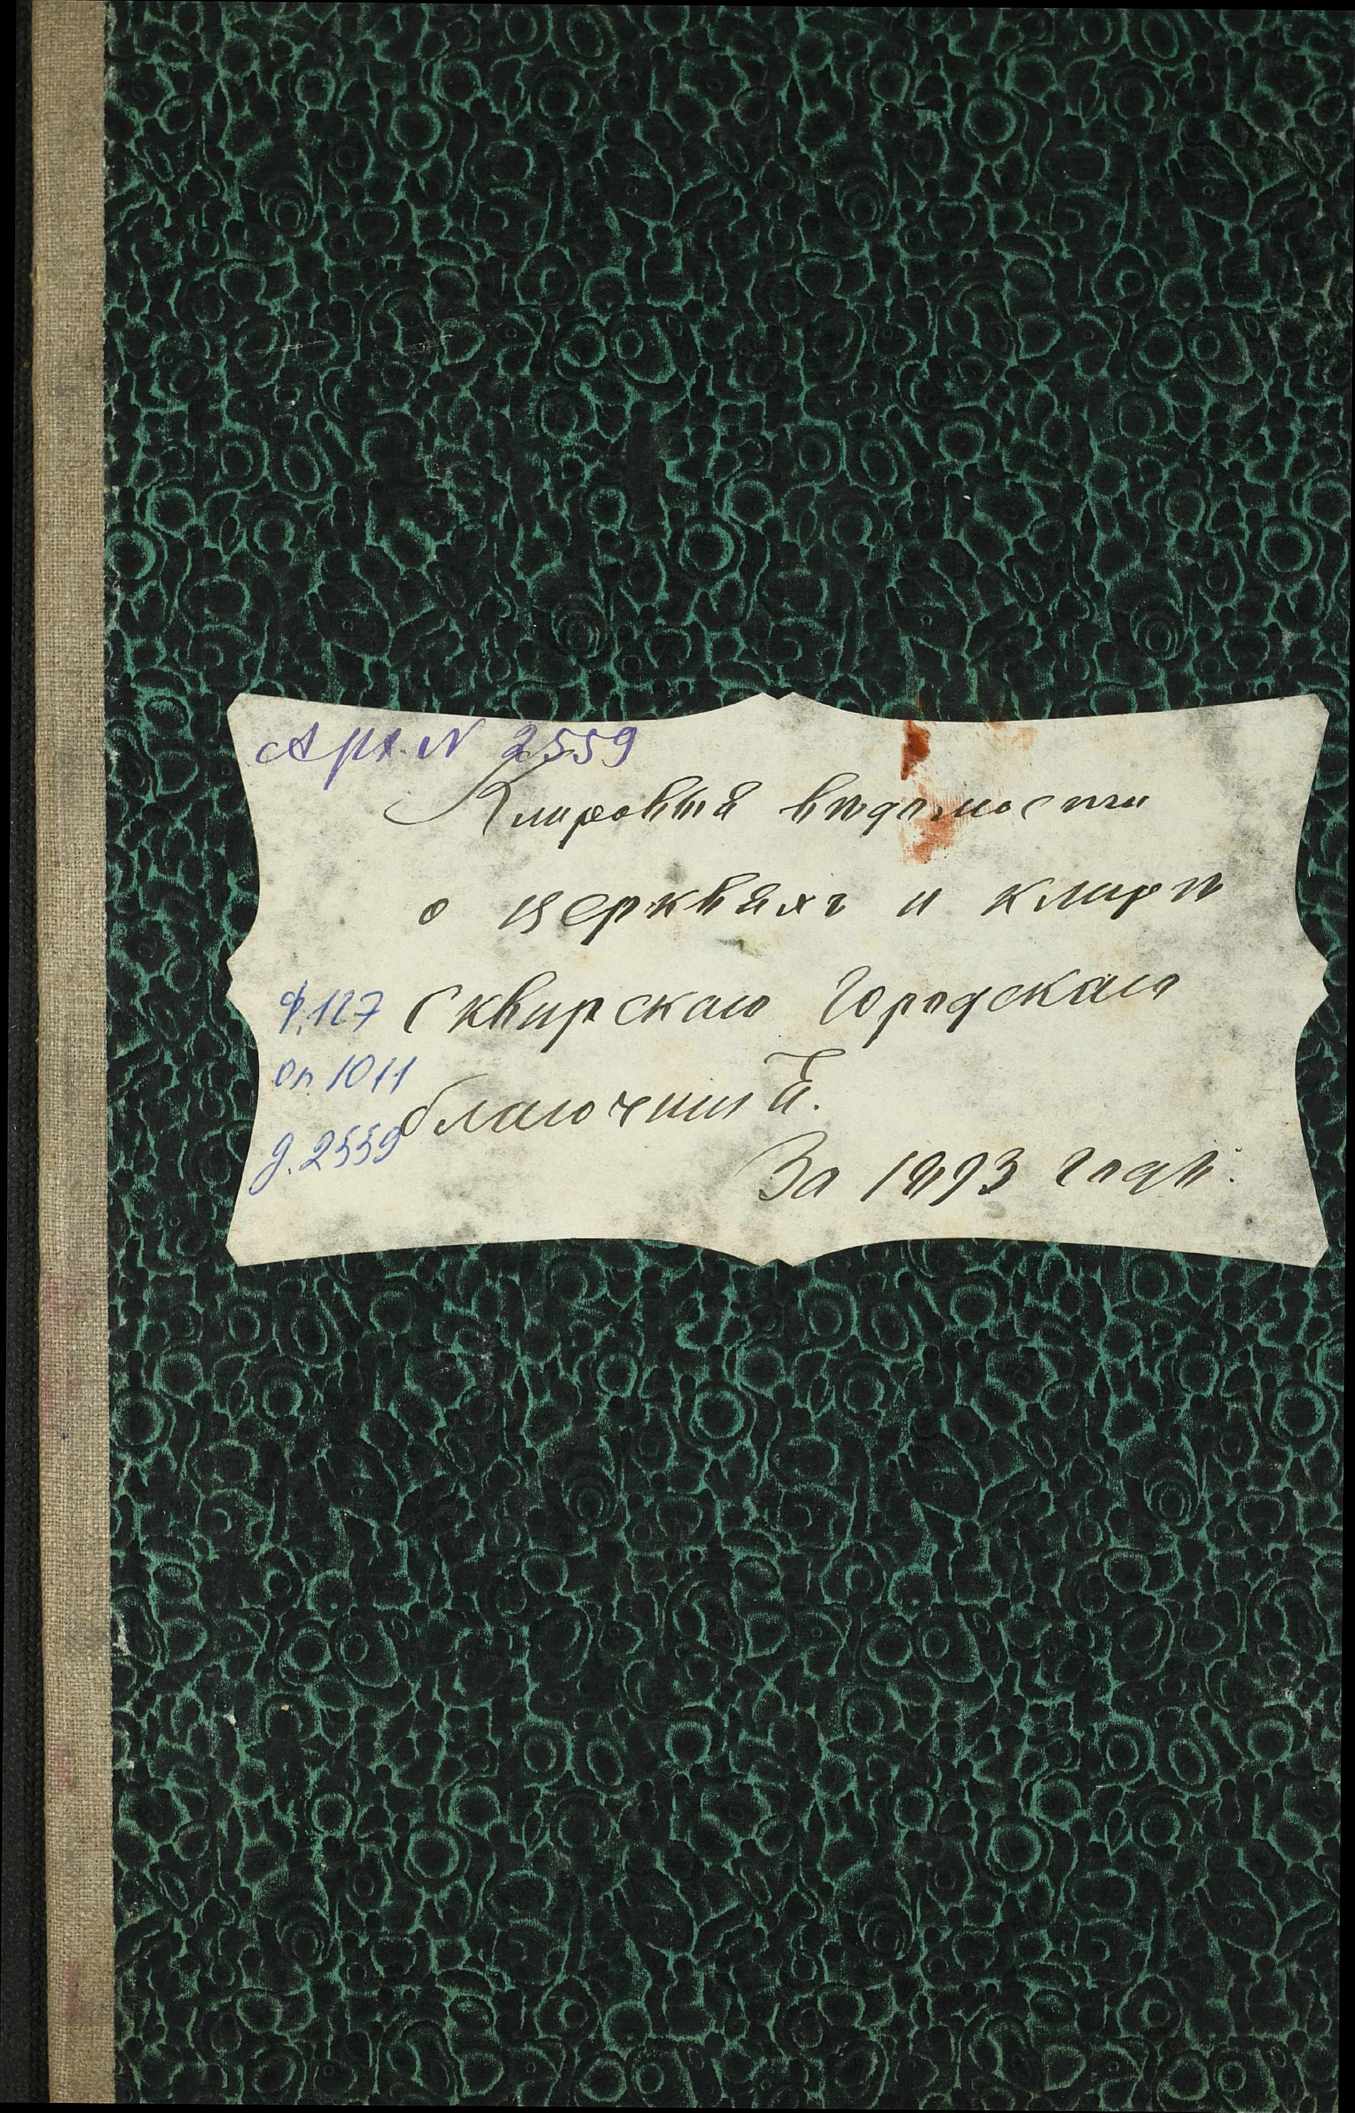 Арх. N 2559
Клировыя вѣдомости
о церквяхъ и клирѣ
Ф. 127 Сквирскаго Городскаго
оп. 1011
благочинія.
д. 2559
За 1893 годъ.